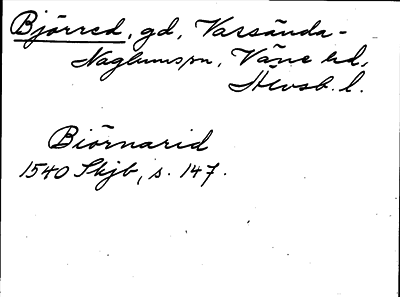 Björred, gd, Varsånda-
Naglumspn, Väne hd,
Älvsb. l.
Biörnarid
1540 Skjb, s. 147.